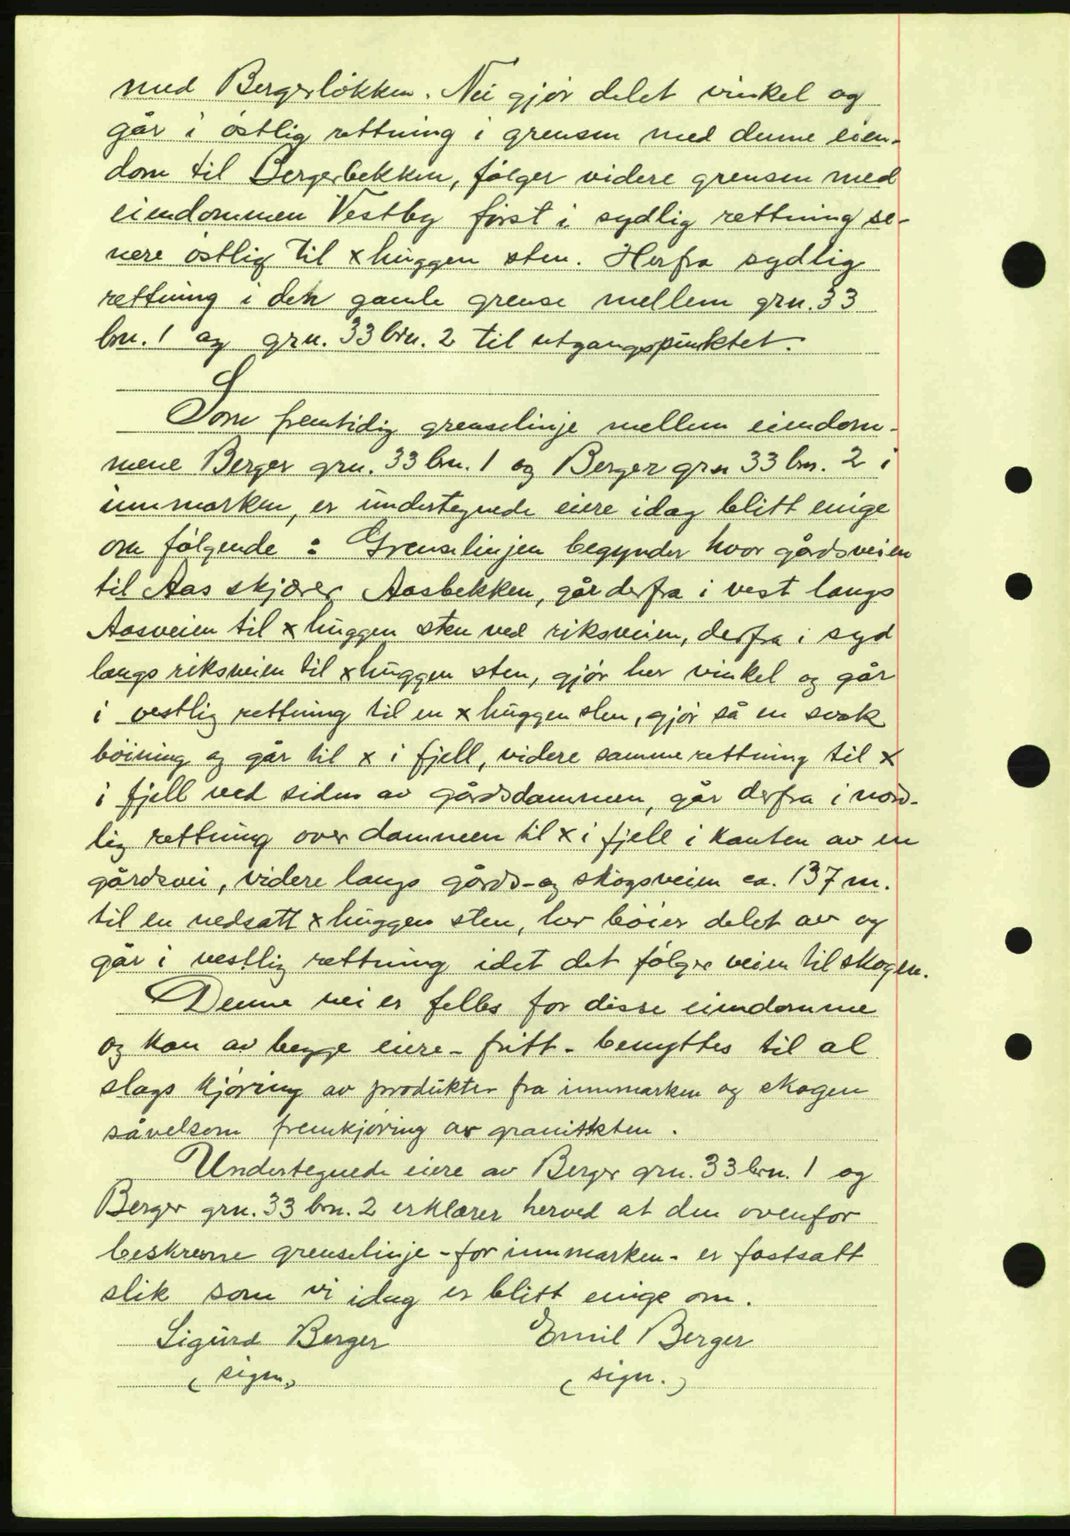 med Bergerløkken. Nu gjør delet vinkel og
går i østlig rettning i grensen med denne eien-
dom til Bergerbekken, følger videre grensen med
eiendommen Vestby først i sydlig rettning se-
nere østlig til x huggen sten. Herfra sydlig
rettning i den gamle grense mellem grn. 33
brn. 1 og grn. 33 brn. 2 til utgangspunktet.
Som fremtidig grenselinje mellem eiendom-
mene Berger grn. 33 brn. 1 og Berger grn 33 brn. 2 i
innmarken, er undertegnede eiere idag blitt enige
om følgende : Grenselinjen begynder hvor gårdsveien
til Aas skjærer Aasbekken, går derfra i vest langs
Aasveien til x huggen sten ved riksveien, derfra i syd
langs riksveien til x huggen sten, gjør her vinkel og går
i vestlig rettning til en x huggen sten, gjør så en svak
bøining og går til x i fjell, videre samme rettning til x
i fjell ved siden av gårdsdammen, går derfra i nord-
lig rettning over dammen til x i fjell i kanten av en
gårdsvei, videre langs gårds- og skogsveien ca. 137 m.
til en nedsatt x huggen sten, her bøier delet av og
går i vestlig rettning idet det følger veien til skogen.
Denne vei er felles for disse eiendomme
og kan av begge eiere - fritt - benyttes til al
slags kjøring av produkter fra innmarken og skogen
såvelsom fremkjøring av granitsten.
Undertegnede eiere av Berger grn. 33 brn. 1 og
Berger grn. 33 brn. 2 erklærer herved at den ovenfor
beskrevne grenselinje - for innmarken - er fastsatt
slik som vi idag er blitt enige om.
Sigurd Berger Emil Berger
(sign.) (sign.)